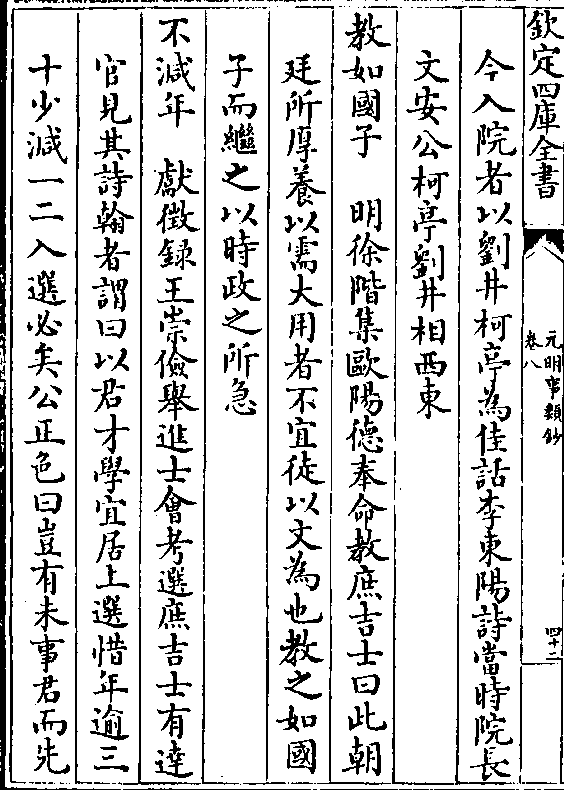 欽定四庫全書
元明事類鈔
卷八
四十二
今入院者以劉井柯亭為佳話李東陽詩當時院長
文安公柯亭劉井相西東
教如國子　明徐階集歐陽德奉命教庶吉士曰此朝
廷所厚養以需大用者不宜徒以文為也教之如國
子而繼之以時政之所急
不減年　獻徵録王崇儉舉進士會考選庶吉士有達
官見其詩翰者謂曰以君才學宜居上選惜年逾三
十少減一二入選必矣公正色曰豈有未事君而先